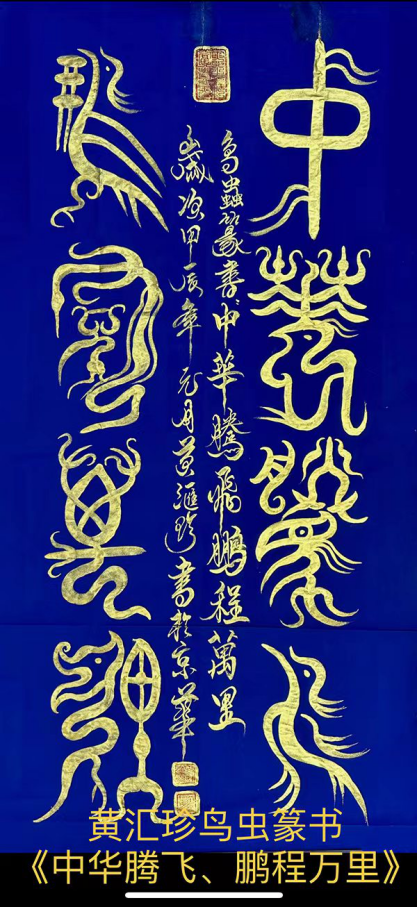 中華騰飛
鵬程萬里
鳥蟲篆書中華騰飛鵬程萬里
歲次甲辰年元月黃滙珍書於京華
黄汇珍鸟虫篆书
《中华腾飞、鹏程万里》